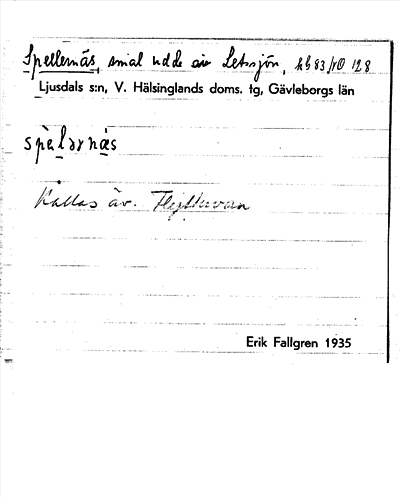 Spellernäs, smal udde av Letssjön,
Ljusdals s:n, V. Hälsinglands doms. tg, Gävleborgs län
spèlərnä̀s
Kallas äv.
Erik Fallgren 1935